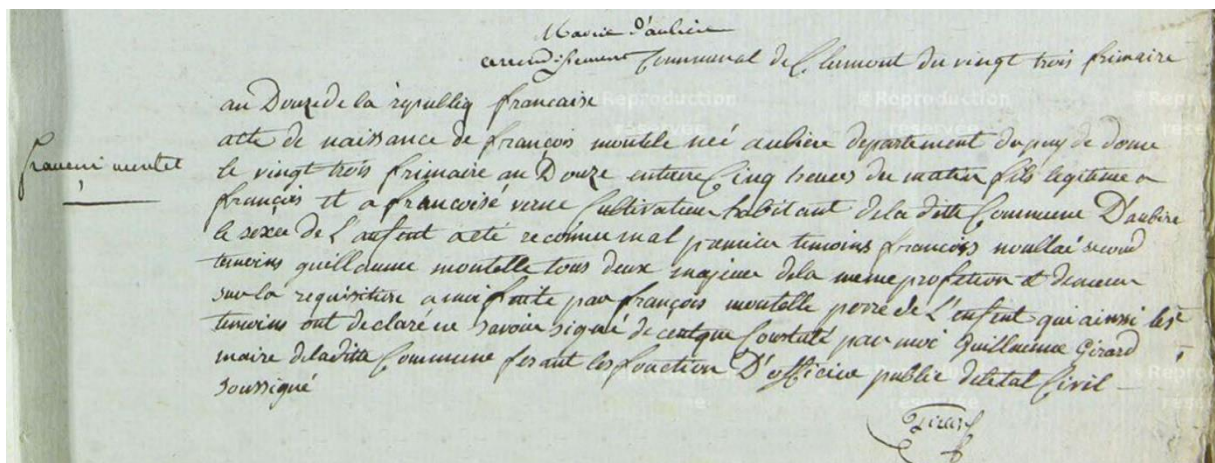 Mairie D'aubiere
arrondissement Communal de Clermont du vingt trois frimaire
an Douze de la republiq francaise
acte de naissance de françois montele neé aubiere departement du puy de dome
le vingt trois frimaire an Douze Cinq heures du matin fils legitime a
françois et a francoisé verne Cultivateur habitant dela ditte Commune D'aubire
le sexe de L'anfant a eté reconnu mal premier temoins francois noullai second
temoins guillaume montelle tous deux majeur dela meme profetion et demeur
sur la requisition a moi faite par françois montelle perre de L'enfent qui ainsi les
temoins ont declaré ne savoir signé de Constaté par moi Guillaume Girard
maire deladitte Commune fesant les fonction D'officier public deletat Civil
soussigné
Girard
francoi montel
© Reproduction réservée
© Reproduction réservée